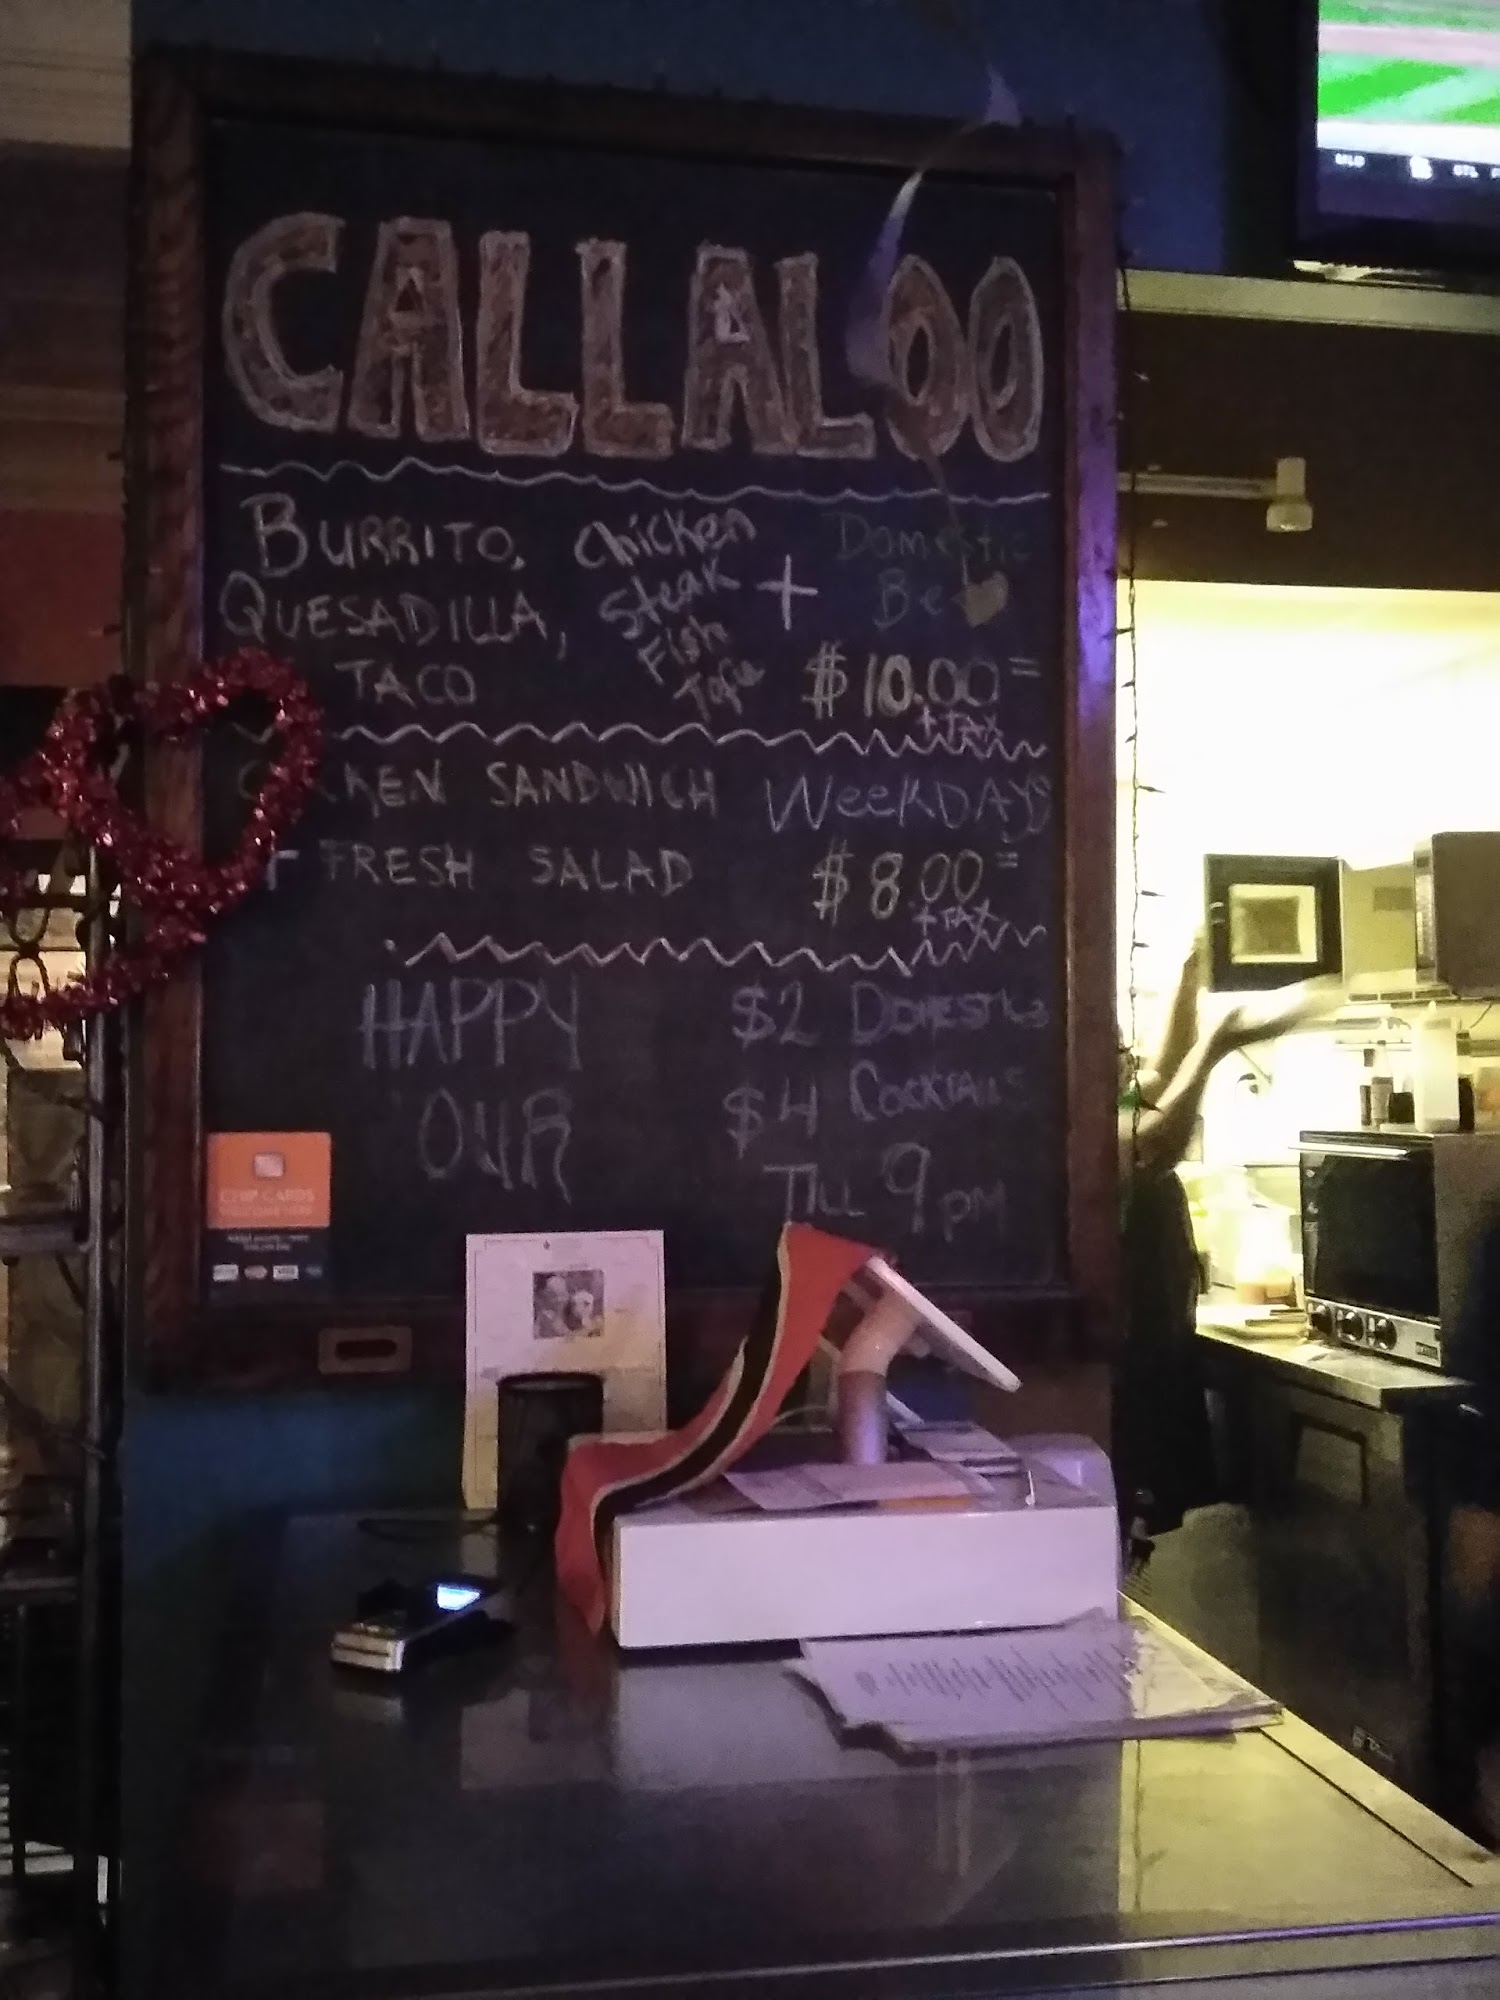 CALLALOO
BURRITO, Chicken + Domestic
QUESADILLA, Steak
TACO Fish
Tofu $10.00=
+ TAX
SANDWICH WEEKDAYS
FRESH SALAD $8.00=
+ TAX
HAPPY $2 DOMESTICS
OUR $4 COCKTAILS
TILL 9 pm
CHIP CARDS
VISA